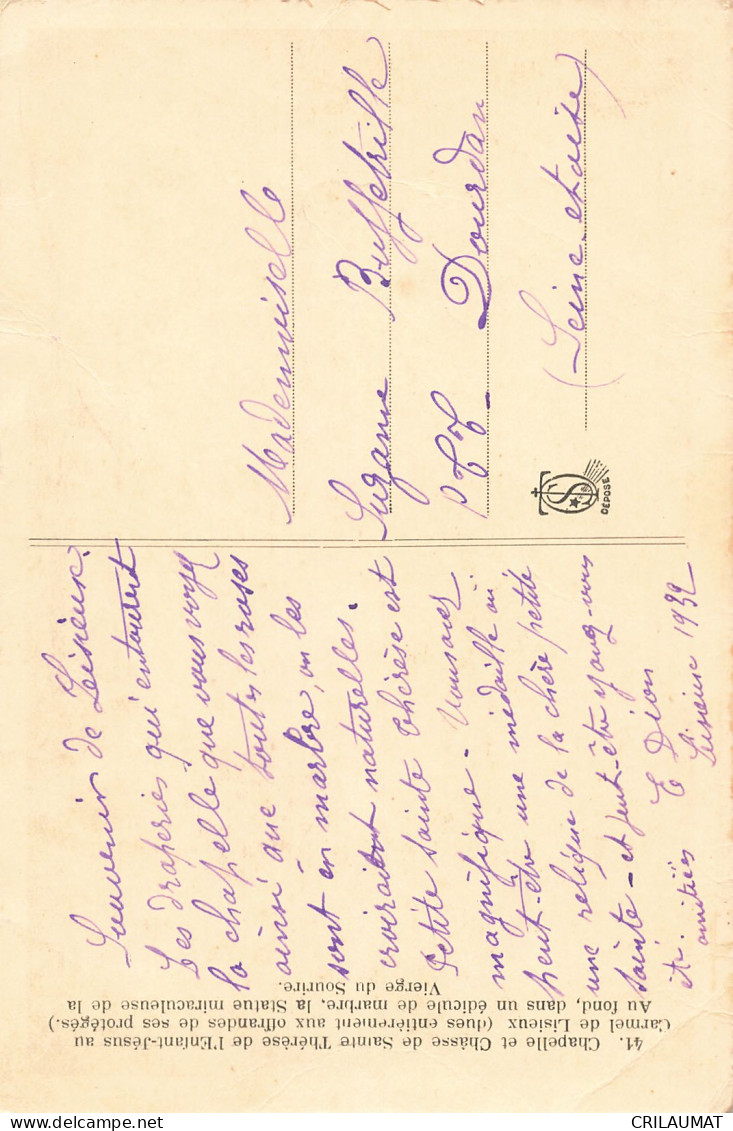 Souvenir de Lisieux.
Les draperies qui entourent
la chapelle que vous voyez
ainsi que toutes les roses
sont en marbre, on les
croiraient naturelles.
Petite sainte Thérèse est
magnifique - Vous avez
peut-être une médaille ou
une relique de la chère petite
sainte - et peut-être y
amitiés E Dion
Lisieux 1932
Mademoiselle
Suzanne
PTT Dourdan
(Seine et Oise)
DÉPOSÉ
41. Chapelle et Châsse de Sainte Thérèse de l'Enfant-Jésus au
Carmel de Lisieux (dues entièrement aux offrandes de ses protégés.)
Au fond, dans un édicule de marbre, la Statue miraculeuse de la
Vierge du Sourire.
delcampe.net
CRILAUMAT